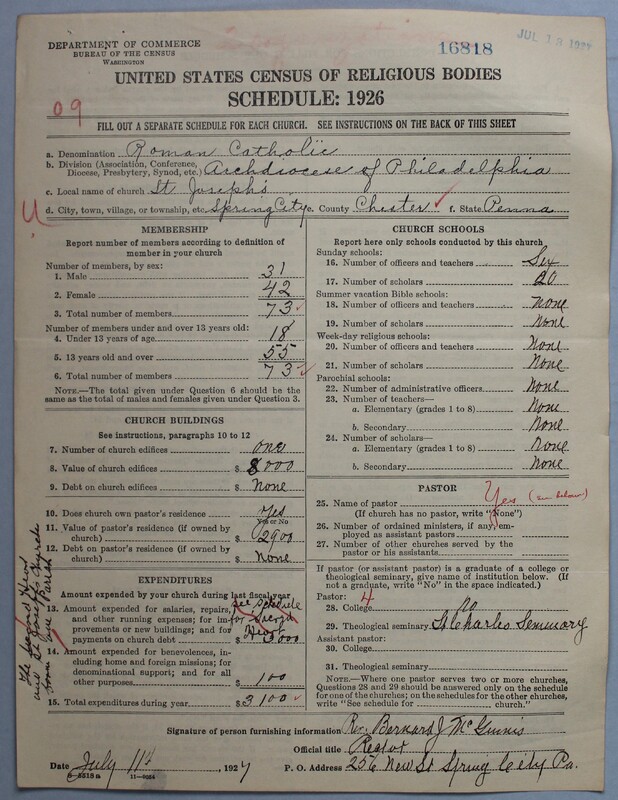 DEPARTMENT OF COMMERCE
BUREAU OF THE CENSUS
WASHINGTON
16818
JUL 13 1927
UNITED STATES CENSUS OF RELIGIOUS BODIES
SCHEDULE: 1926
09
FILL OUT A SEPARATE SCHEDULE FOR EACH CHURCH. SEE INSTRUCTIONS ON THE BACK OF THIS SHEET
a. Denomination Roman Catholic
b. Division (Association, Conference, Diocese, Presbytery, Synod, etc.) Archdiocese of Philadelphia
c. Local name of church St Joseph's
U d. City, town, village, or township, etc. Spring City e. County Chester f. State Penna
MEMBERSHIP
Report number of members according to definition of member in your church
Number of members, by sex:
1. Male 31
2. Female 42
3. Total number of members 73
Number of members under and over 13 years old:
4. Under 13 years of age 18
5. 13 years old and over 55
6. Total number of members 73
NOTE.—The total given under Question 6 should be the same as the total of males and females given under Question 3.
CHURCH BUILDINGS
See instructions, paragraphs 10 to 12
7. Number of church edifices one
8. Value of church edifices $ 8000
9. Debt on church edifices $ None
10. Does church own pastor's residence? Yes
Yes or No
11. Value of pastor's residence (if owned by church) $ 2900
12. Debt on pastor's residence (if owned by church) $ None
EXPENDITURES
Amount expended by your church during last fiscal year
13. Amount expended for salaries, repairs, and other running expenses; for improvements or new buildings; and for payments on church debt $ 3000
see Schedule
for Sacred
Heart
14. Amount expended for benevolences, including home and foreign missions; for denominational support; and for all other purposes $ 100
15. Total expenditures during year $ 3100
The Sacred Heart
and St Joseph's Church
form one Parish
CHURCH SCHOOLS
Report here only schools conducted by this church
Sunday schools:
16. Number of officers and teachers Six
17. Number of scholars 20
Summer vacation Bible schools:
18. Number of officers and teachers None
19. Number of scholars None
Week-day religious schools:
20. Number of officers and teachers None
21. Number of scholars None
Parochial schools:
22. Number of administrative officers None
23. Number of teachers—
a. Elementary (grades 1 to 8) None
b. Secondary None
24. Number of scholars—
a. Elementary (grades 1 to 8) None
b. Secondary None
PASTOR
25. Name of pastor Yes (see below)
(If church has no pastor, write "None")
26. Number of ordained ministers, if any, employed as assistant pastors
27. Number of other churches served by the pastor or his assistants
If pastor (or assistant pastor) is a graduate of a college or theological seminary, give name of institution below. (If not a graduate, write "No" in the space indicated.)
Pastor: 4
28. College No
29. Theological seminary St Charles Seminary
Assistant pastor:
30. College
31. Theological seminary
NOTE.—Where one pastor serves two or more churches, Questions 28 and 29 should be answered only on the schedule for one of the churches; on the schedules for the other churches, write "See schedule for church."
Signature of person furnishing information Rev. Bernard J McGinnis
Official title Rector
Date July 11th, 1927 P. O. Address 256 New St Spring City Pa.
8-5518a 11-9664